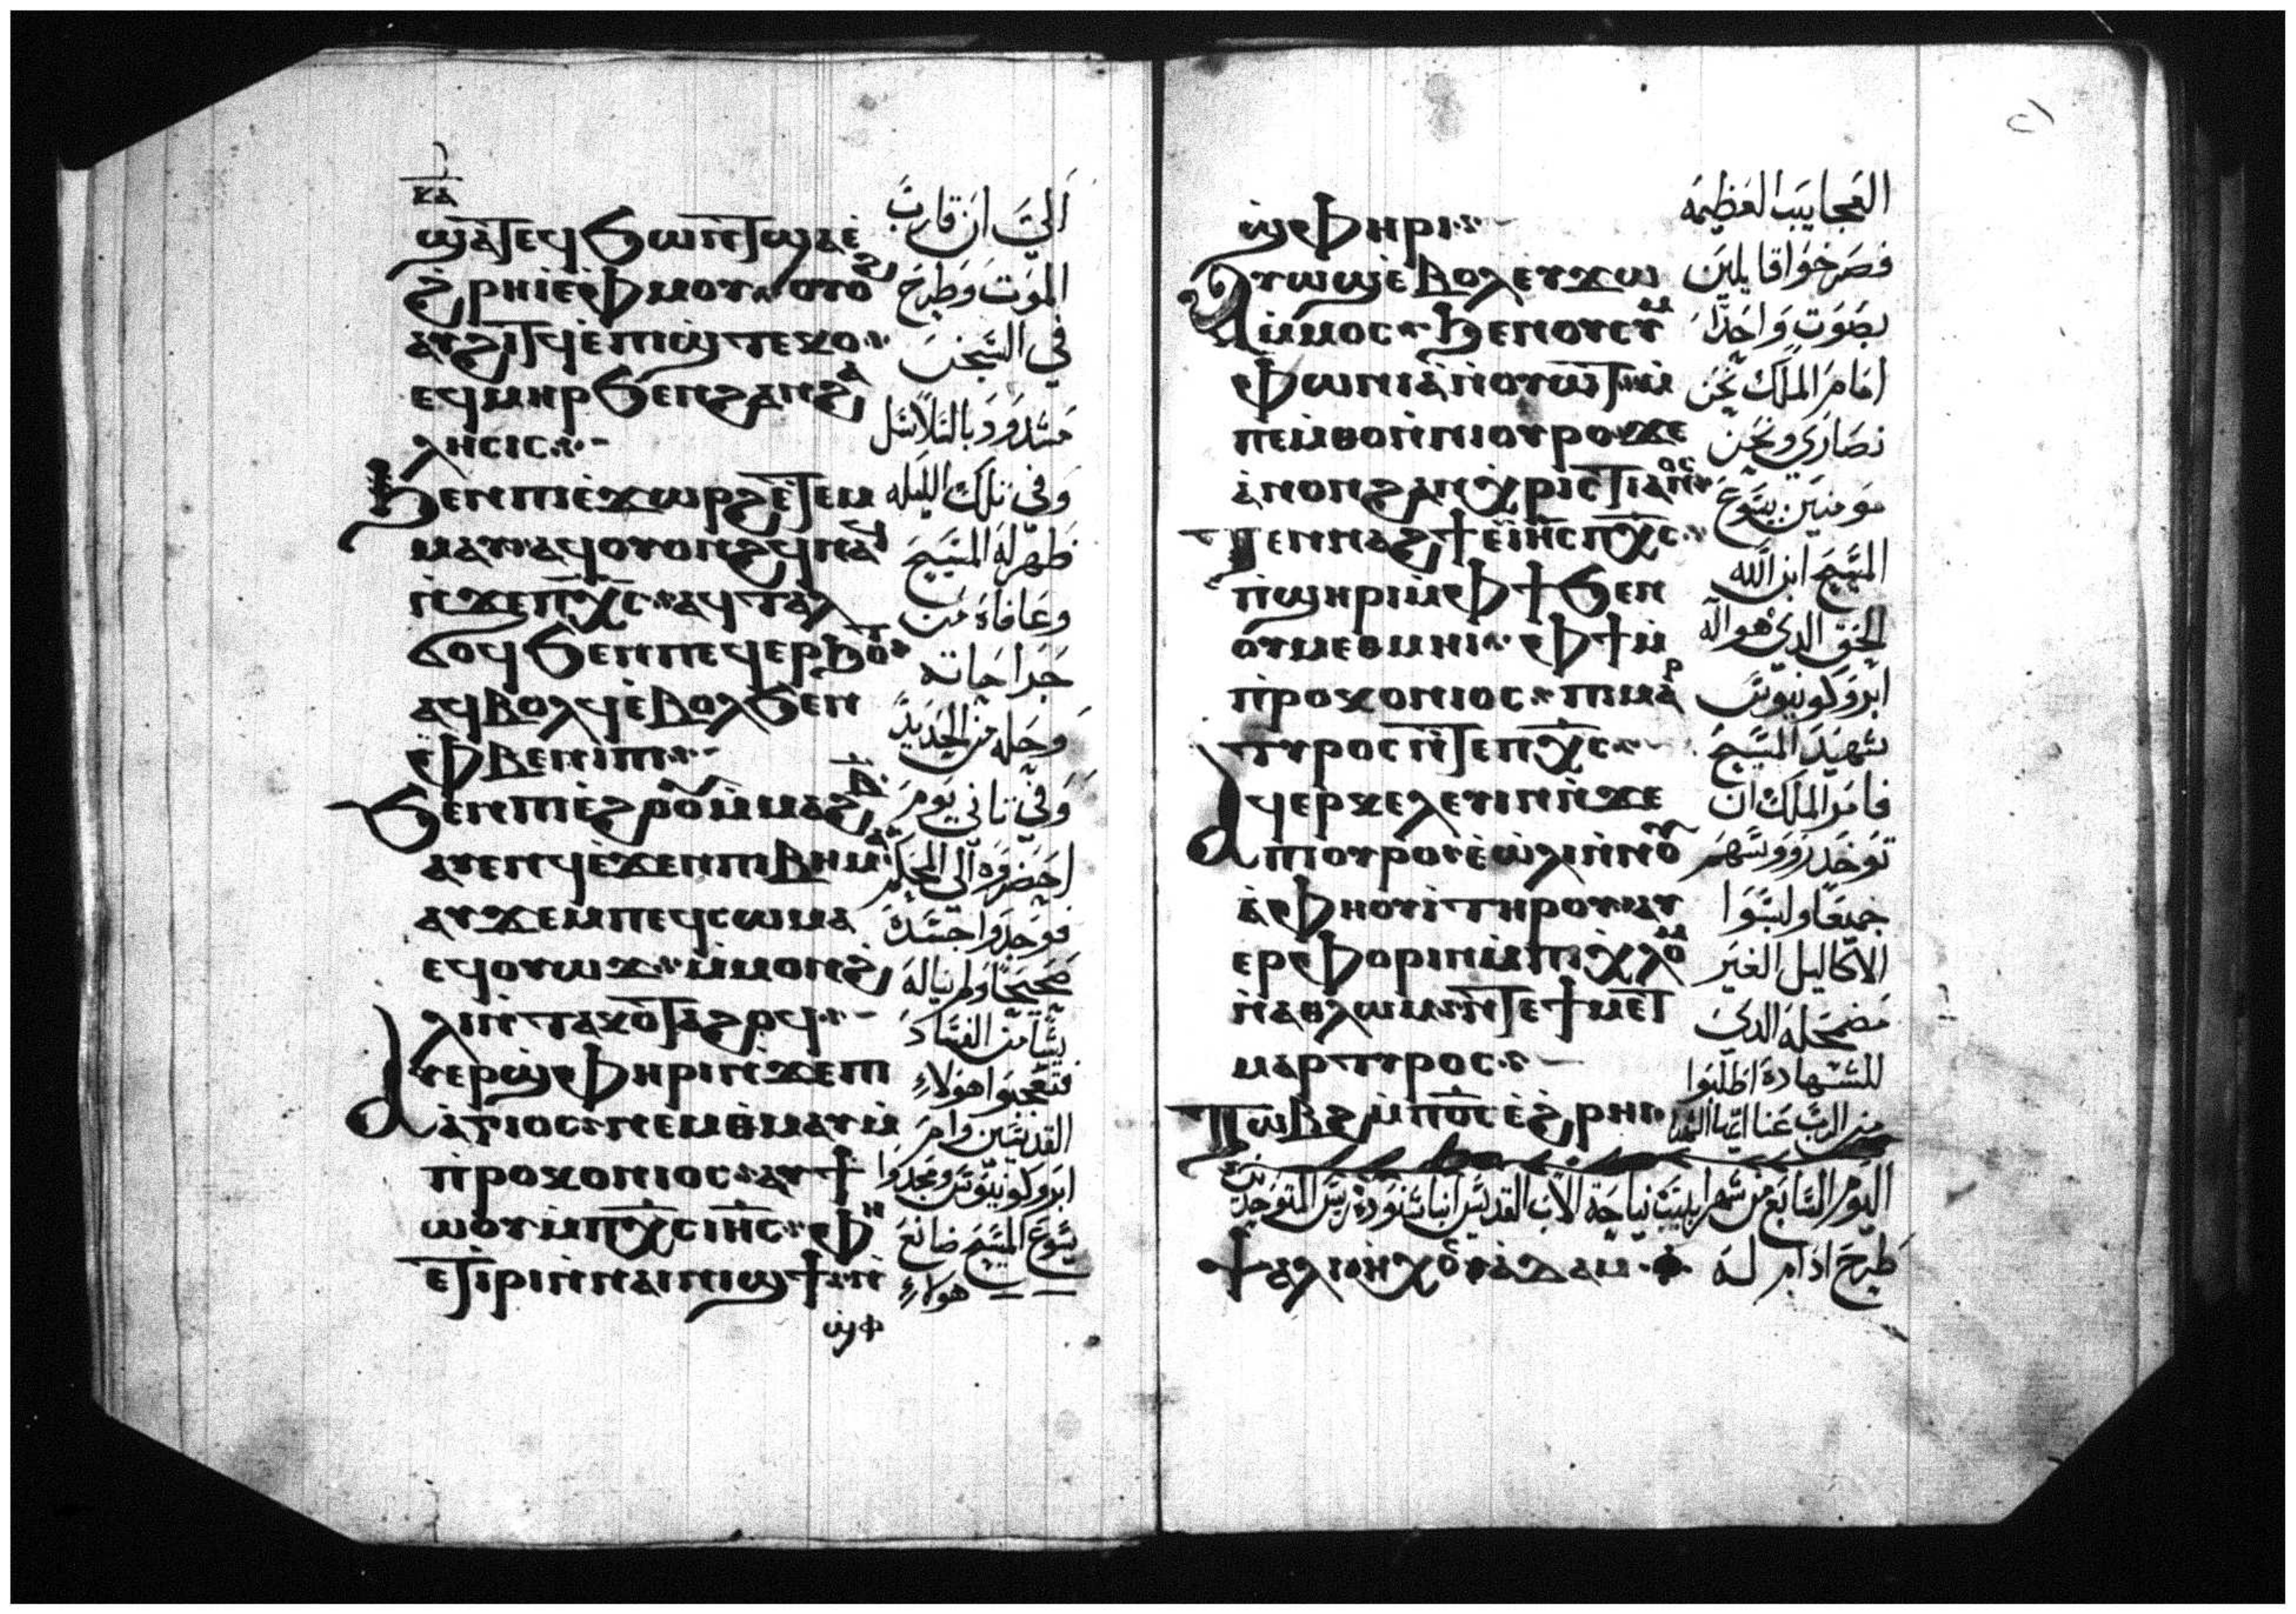 ⲕⲁ
ϣⲁⲧⲉϥϧⲱⲛⲧ ϣⲁⲉ̀
ϩ̀ⲣⲏⲓ ⲉ̀ⲫⲙⲟⲩ ⲟⲩⲟϩ
ⲁⲩϩⲓⲧϥ ⲉ̀ⲡⲓϣⲧⲉⲕⲟ
ⲉϥⲙⲏⲣ ϧⲉⲛ ϩⲁⲛϩⲁ
ⲗⲏⲥⲓⲥ
ϧⲉⲛ ⲡⲓⲉ̀ϫⲱⲣϩ ⲉ̀ⲧⲉⲙ
ⲙⲁⲩ ⲁϥⲟⲩⲟⲛϩϥ ⲛⲁϥ
ⲛ̀ϫⲉ ⲡⲭ̅ⲥ̅ ⲁϥⲧⲁⲗ
ϭⲟϥ ϧⲉⲛ ⲛⲉϥⲉⲣϧⲟⲧ
ⲁϥⲃⲟⲗϥ ⲉ̀ⲃⲟⲗϧⲉⲛ
ⲫⲃⲉⲛⲓⲡⲓ
ϧⲉⲛ ⲡⲓⲉ̀ϩⲟⲟⲩ ⲙ̀ⲙⲁϩⲃ̅
ⲁⲩⲉⲛϥ ⲉ̀ϫⲉⲛ ⲡⲓⲃⲏⲙⲁ
ⲁⲩϫⲉⲙ ⲡⲉϥⲥⲱⲙⲁ
ⲉϥⲟⲩⲱϫ ⲙ̀ⲙⲟⲛ ϩ
ⲗⲓ ⲛ̀ⲧⲁⲕⲟ
ⲁⲩⲉⲣϣⲫⲏⲣⲓ ⲛ̀ϫⲉ ⲡⲓ
ⲁ̀ⲅⲓⲟⲥ ⲛⲉⲙ ⲑⲙⲁⲩ ⲙ̀
ⲡ̀ⲣⲟⲕⲟⲛⲓⲟⲥ ⲁⲩϯ
ⲱ̀ⲟⲩ ⲙ̀ⲡⲭ̅ⲥ̅ ⲓⲏ̅ⲥ̅ ⲫⲏ
ⲉⲧⲓⲣⲓ ⲛ̀ⲛⲁⲓⲛⲓϣϯ ⲛ̀
ϣⲫ
الي ان قارب
الموت وطرح
في السجن
مشدود بالسلاسل
وفي تلك الليله
ظهر له المسيح
وعافاه من
جراحاته
وحله من الحديد
وفي تاني يوم
احضروه الي الحكم
فوجدوا جسده
صحيحا ولم يناله
شيا من الفساد
فتعجبوا هولاء
القديسين وام
ابروكونيوس ومجدوا
يسوع المسيح صانع
هولاء
ϣⲫⲏⲣⲓ
ⲁⲩⲱϣ ⲉ̀ⲃⲟⲗ ⲉⲩϫⲱ
ⲙ̀ⲙⲟⲥ ϧⲉⲛ ⲟⲩⲥⲙⲏ
ⲫⲱⲛⲓⲁ̀ ⲛ̀ⲟⲩⲱⲧ ⲙ̀
ⲡⲉⲙⲑⲟ ⲙ̀ⲡⲓⲟⲩⲣⲟ ϫⲉ
ⲁ̀ⲛⲟⲛ ϩⲁⲛⲭⲣⲓⲥⲧⲓⲁⲛⲟⲥ
ⲧⲉⲛⲛⲁϩϯ ⲉ̀ⲓⲏ̅ⲥ̅ ⲡⲭ̅ⲥ̅
ⲡ̀ϣⲏⲣⲓ ⲙ̀ⲫϯ ϧⲉⲛ
ⲟⲩⲙⲉⲑⲙⲏⲓ ⲫϯ ⲙ̀
ⲡ̀ⲣⲟⲕⲟⲛⲓⲟⲥ ⲡⲓⲙⲁⲣ
ⲧⲩⲣⲟⲥ ⲛ̀ⲧⲉ ⲡⲭ̅ⲥ̅
ⲁϥⲉⲣⲕⲉⲗⲉⲩⲓⲛ ⲛ̀ϫⲉ
ⲡⲓⲟⲩⲣⲟ ⲉ̀ⲱ̀ⲗⲓ ⲛ̀ⲛⲟⲩ
ⲁ̀ⲫⲏⲟⲩⲓ̀ ⲧⲏⲣⲟⲩ ⲁⲩ
ⲉⲣⲫⲟⲣⲓⲛ ⲙ̀ⲡⲓⲭⲗⲟⲙ
ⲛ̀ⲁⲑⲗⲱⲙ ⲛ̀ⲧⲉ ϯⲙⲉⲧ
ⲙⲁⲣⲧⲩⲣⲟⲥ
ⲧⲱⲃϩ ⲙ̀ⲡⲟ̅ⲥ̅ ⲉ̀ϩ̀ⲣⲏⲓ
العجايب العظيمه
فصرخوا قايلين
بصوت واحدا
امام الملك نحن
نصاري ونحن
مومنين بيسوع
المسيح ابن الله
الحق الدي هو اله
ابروكونيوس
شهيد المسيح
فامر الملك ان
توخد رووسهم
جميعا ولبسوا
الاكاليل الغير
مضمحله الدي
للشهاده اطلبوا
من الرب عنا ايها الشهدا
اليوم السابع من شهر ابيب نياحة الاب القديس انبا شنوده ريس المتوحدين
طرح ادام له
ⲯⲁⲗⲓ ⲏⲭⲟⲥ ⲁⲇⲁⲙ